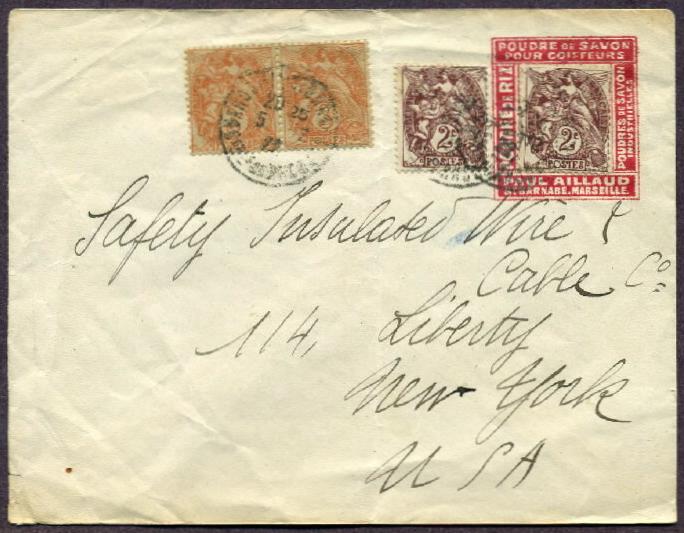 POUDRE DE SAVON
POUR COIFFEURS
DE RIZ
POUDRES DE SAVON
INDUSTRIELLES
PAUL AILLAUD
BARNABE. MARSEILLE.
2c
POSTES
2c
POSTES
POSTES
Safety Insulated Wire &
Cable Co
114, Liberty
New York
U S A